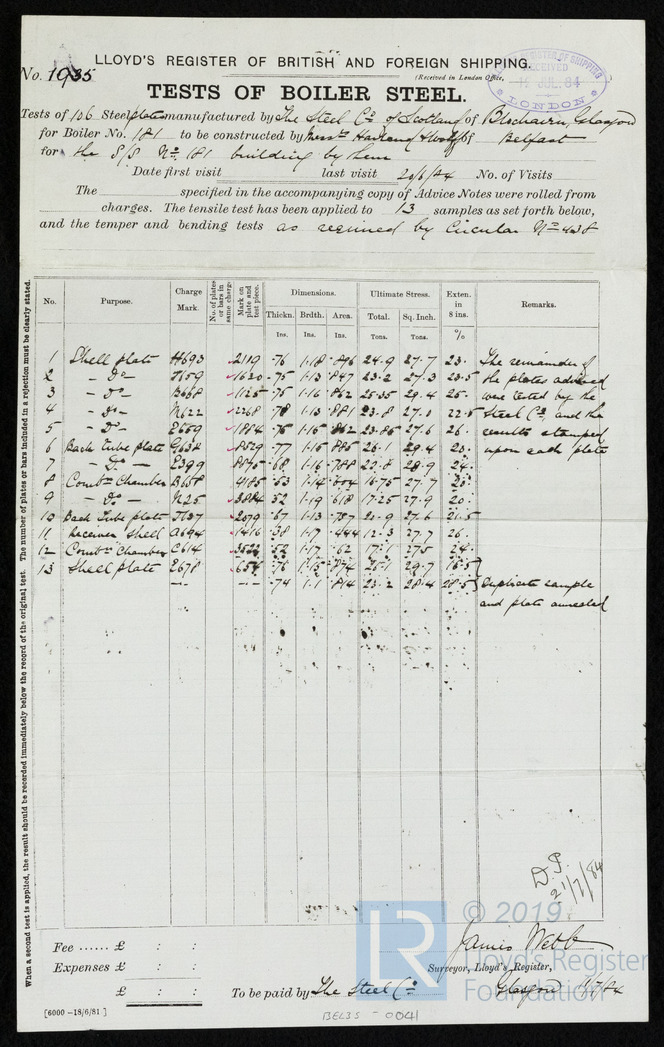 No. 1935
LLOYD'S REGISTER OF BRITISH AND FOREIGN SHIPPING.
(Received in London Office,
RECEIVED
JUL. 84
LONDON
TESTS OF BOILER STEEL.
Tests of 106 Steel plates manufactured by The Steel Co. of Scotland of Blochairn, Glasgow
for Boiler No. 181 to be constructed by Messrs Harland & Wolff of Belfast
for the S/S No. 181 building by them
Date first visit last visit 20/6/84 No. of Visits
The specified in the accompanying copy of Advice Notes were rolled from
charges. The tensile test has been applied to 13 samples as set forth below,
and the temper and bending tests as required by Circular No 438
No. Purpose. Charge Mark. No. of plates or bars in same charge. Mark on plate and test piece. Dimensions. Ultimate Stress. Exten. in 8 ins. Remarks.
Thickn. Brdth. Area. Total. Sq. Inch.
Ins. Ins. Ins. Tons. Tons. %
1 Shell plate H693 2119 .76 1.18 .896 24.9 27.7 23. The remainder of
2 - Do - 1620 .75 1.13 .847 23.2 27.3 23.5 the plates advised
3 - Do - B658 1125 .75 1.16 .862 25.35 29.4 25. were tested by the
4 - Do - N622 2268 .78 1.13 .881 23.8 27.0 22.5 Steel Co. and the
5 - Do - E659 1814 .75 1.15 .862 23.85 27.6 26. results stamped
6 Back Tube plate G638 8529 .77 1.15 .885 26.1 29.4 20. upon each plate
7 - Do - E399 .68 1.16 .788 22.8 28.9 24.
8 Combn Chamber B658 4185 .53 1.14 .604 16.75 27.7 25.
9 - Do - N25 3884 .52 1.19 .618 17.25 27.9 20.
10 Back Tube plate 2079 .67 1.13 .757 20.9 27.6 21.5
11 Receiver Shell A694 1416 .38 1.17 .444 12.3 27.7 26.
12 Combn Chamber C614 3522 .52 1.17 .62 17.1 27.5 24.
13 Shell plate E678 654 .76 1.15 .874 29.7 16.5
.74 1.1 .814 23.2 28.4 28.5 Duplicate sample
and plate annealed
When a second test is applied, the result should be recorded immediately below the record of the original test. The number of plates or bars included in a rejection must be clearly stated.
D.P.
21/7/84
© 2019
LR
Lloyd's Register
Foundation
Fee ...... £ : :
James Webb
Expenses £ : :
Surveyor, Lloyd's Register,
£ : :
To be paid by The Steel Co.
Glasgow 11/7/84
[6000 -18/6/81.]
BEL35 - 0041